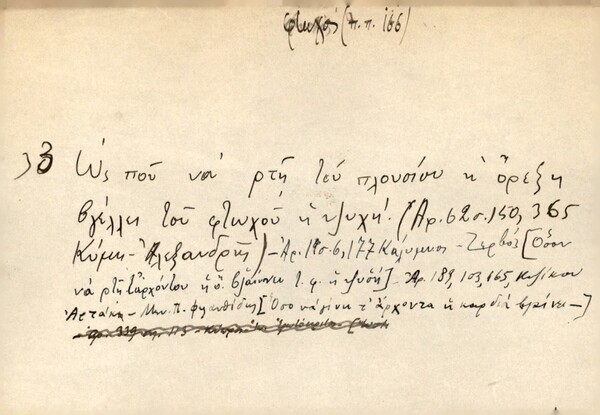 φτωχός (π.π. 166)
33 Ὡς ποῦ νά ρτῆ τοῦ πλουσίου ἡ ὄρεξη
βγέλλει τοῦ φτωχοῦ ἡ ψυχή. (Ἀρ. 62 σ. 150, 365
Κύμη - Ἀλεξανδρῆς) - Ἀρ. 145. 6, 177 Κάλυμνος - Ζερβός [Ὅσον
νά ρτῇ τ' ἄρχοντου ἡ ὄ. βγαίνει τ. φ. ἡ ψυσή] - Ἀρ. 189, 103, 165, Κυζίκου
Ἀρτάκη - Μην. Π. [Ὅσο νά γίνη τ' ἄρχοντα ἡ καρδιά βγαίνει -]